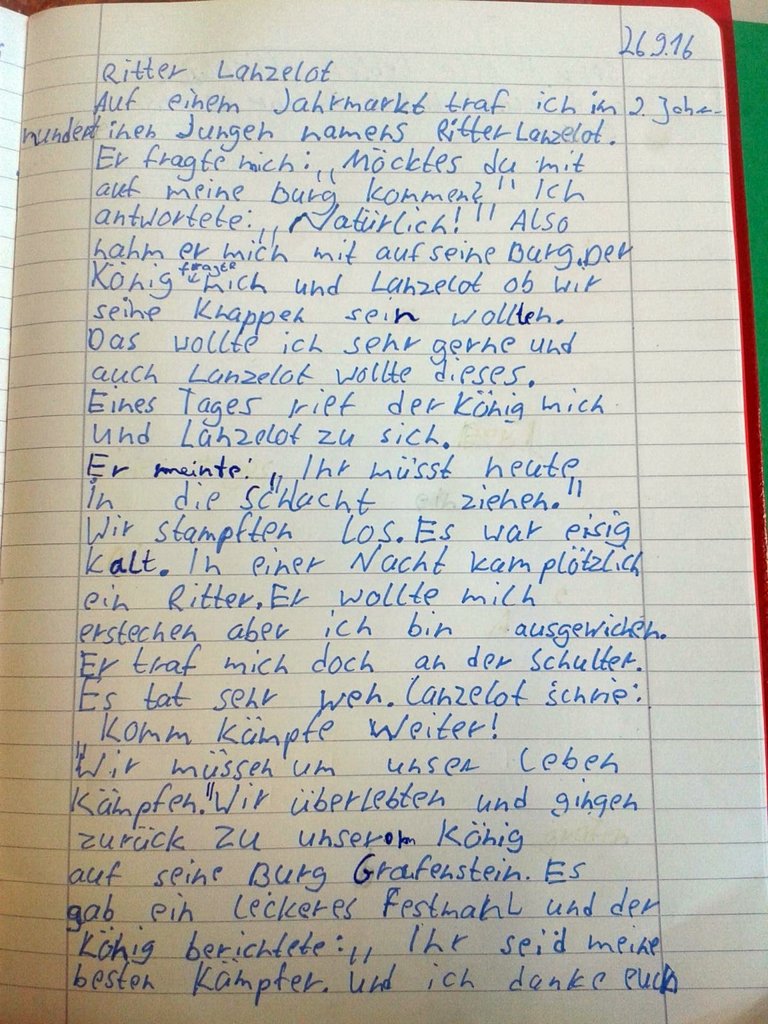 26.9.16
Ritter Lanzelot
Auf einem Jahrmarkt traf ich im 2. Jahr-
hundert inen Jungen namens Ritter Lanzelot.
Er fragte mich: „Möcktes du mit
auf meine Burg kommen?" Ich
antwortete: „Natürlich!" Also
nahm er mich mit auf seine Burg. Der
König fragte mich und Lanzelot ob wir
seine Knappen sein wollten.
Das wollte ich sehr gerne und
auch Lanzelot wollte dieses.
Eines Tages rief der König mich
und Länzelot zu sich.
Er meinte: „Ihr müsst heute
in die Schlacht ziehen."
Wir stampften los. Es war eisig
kalt. In einer Nacht kam plötzlich
ein Ritter. Er wollte mich
erstechen aber ich bin ausgewichen.
Er traf mich doch an der Schulter.
Es tat sehr weh. Lanzelot schrie:
Komm kämpfe weiter!
"Wir müssen um unser Leben
kämpfen." Wir überlebten und gingen
zurück zu unserem König
auf seine Burg Grafenstein. Es
gab ein leckeres Festmahl und der
König berichtete: „Ihr seid meine
besten Kämpfer. Und ich danke euch